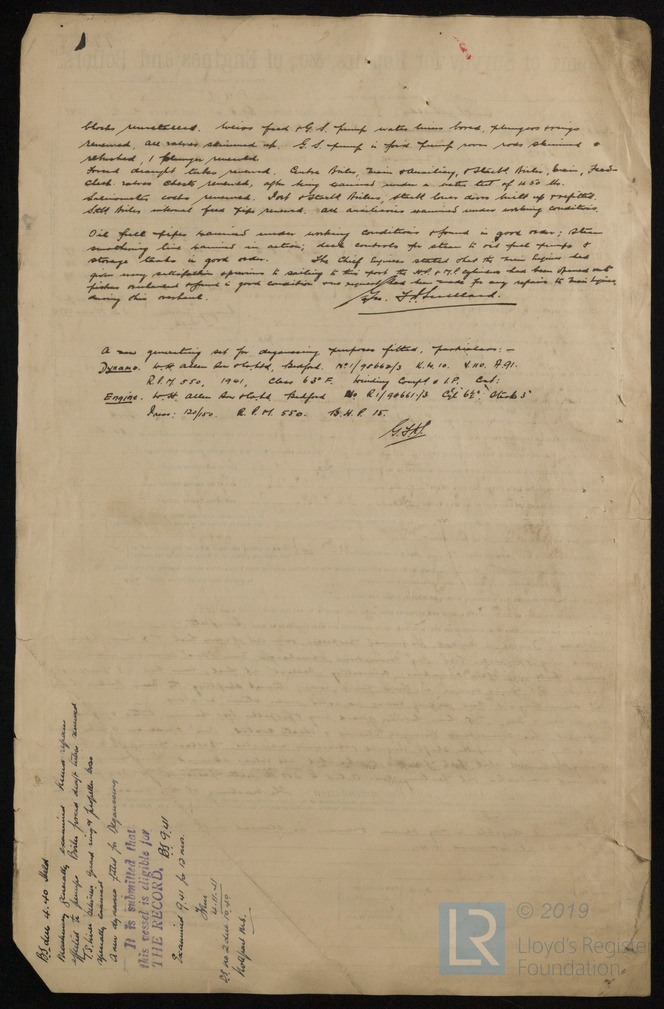 blocks remetalled. Weirs feed & G.S. pump water liners bored, plungers & rings
renewed, all valves skimmed up. G.S. pump & fwd pump room rods skimmed &
rebushed, 1 plunger renewed.
Forced draught tubes renewed. Centre Boiler, main & auxiliary, & Starbd Boiler, main, Feed
check valves chests renewed, after being examined under a water test of 450 lbs.
Salinometer cocks renewed. Port & Starbd Boilers, doors built up & refitted.
Stbd Boiler internal feed pipe renewed. All auxiliaries examined under working conditions.
Oil fuel pipes examined under working conditions & found in good order; steam
smothering line examined in action; deck controls for steam to oil fuel pumps &
storage tanks in good order. The Chief Engineer stated that the main Engines had
given every satisfaction & previous to sailing to this port the H.P. & M.P. cylinders had been opened out
pistons overhauled & found in good condition & no request had been made for any repairs to Main Engines
during this overhaul.
A new generating set for degaussing purposes fitted, particulars:-
Dynamo. W.H. Allen Son & Co Ltd, Bedford. No 1/90662/3 K.W. 10. V. 110. A. 91.
R.P.M 550, 1941, Class 63° F. Winding Compd & I.P.
Engine. W.H. Allen Son & Co Ltd Bedford No R1/90661/3 Cyl 6½" Stroke 5"
Press: 120/150. R.P.M. 550. B.H.P. 15.
BS due 4.40 Held
Machinery generally examined & repairs
effected to pumps Boiler forced draft tubes renewed
TS liner & propeller was
specially examined
A new dynamo fitted for Degaussing
It is submitted that
this vessel is eligible for
THE RECORD. BS 9.41
Examined 9.41 for 12 mos.
4.11.41
© 2019
Lloyd's Register
Foundation
LR